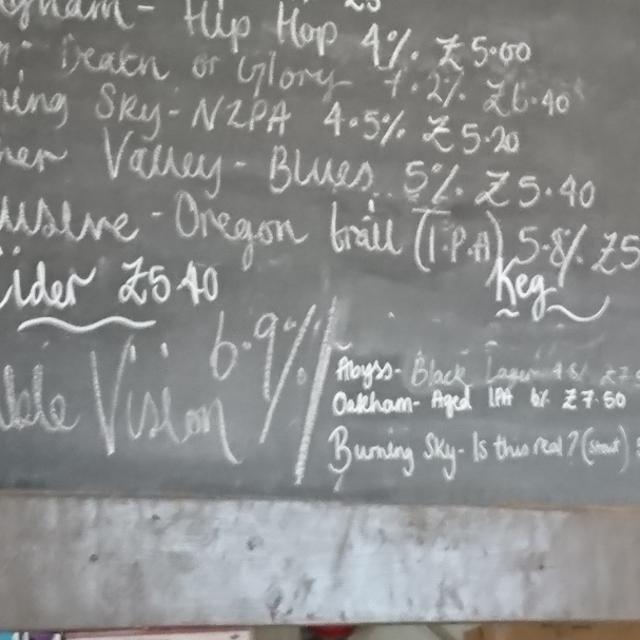 gham - Hip Hop 4% £5.00
- Death or Glory 7.2% £6.40
ning Sky - NZPA 4.5% £5.20
ner Valley - Blues 5% £5.40
usive - Oregon trail (I.P.A) 5.8% £5
ider £5.40
Keg
ble Vision 6.9%
Abyss - Black Lager
Oakham - Aged IPA £7.50
Burning Sky - Is this real? (sour)